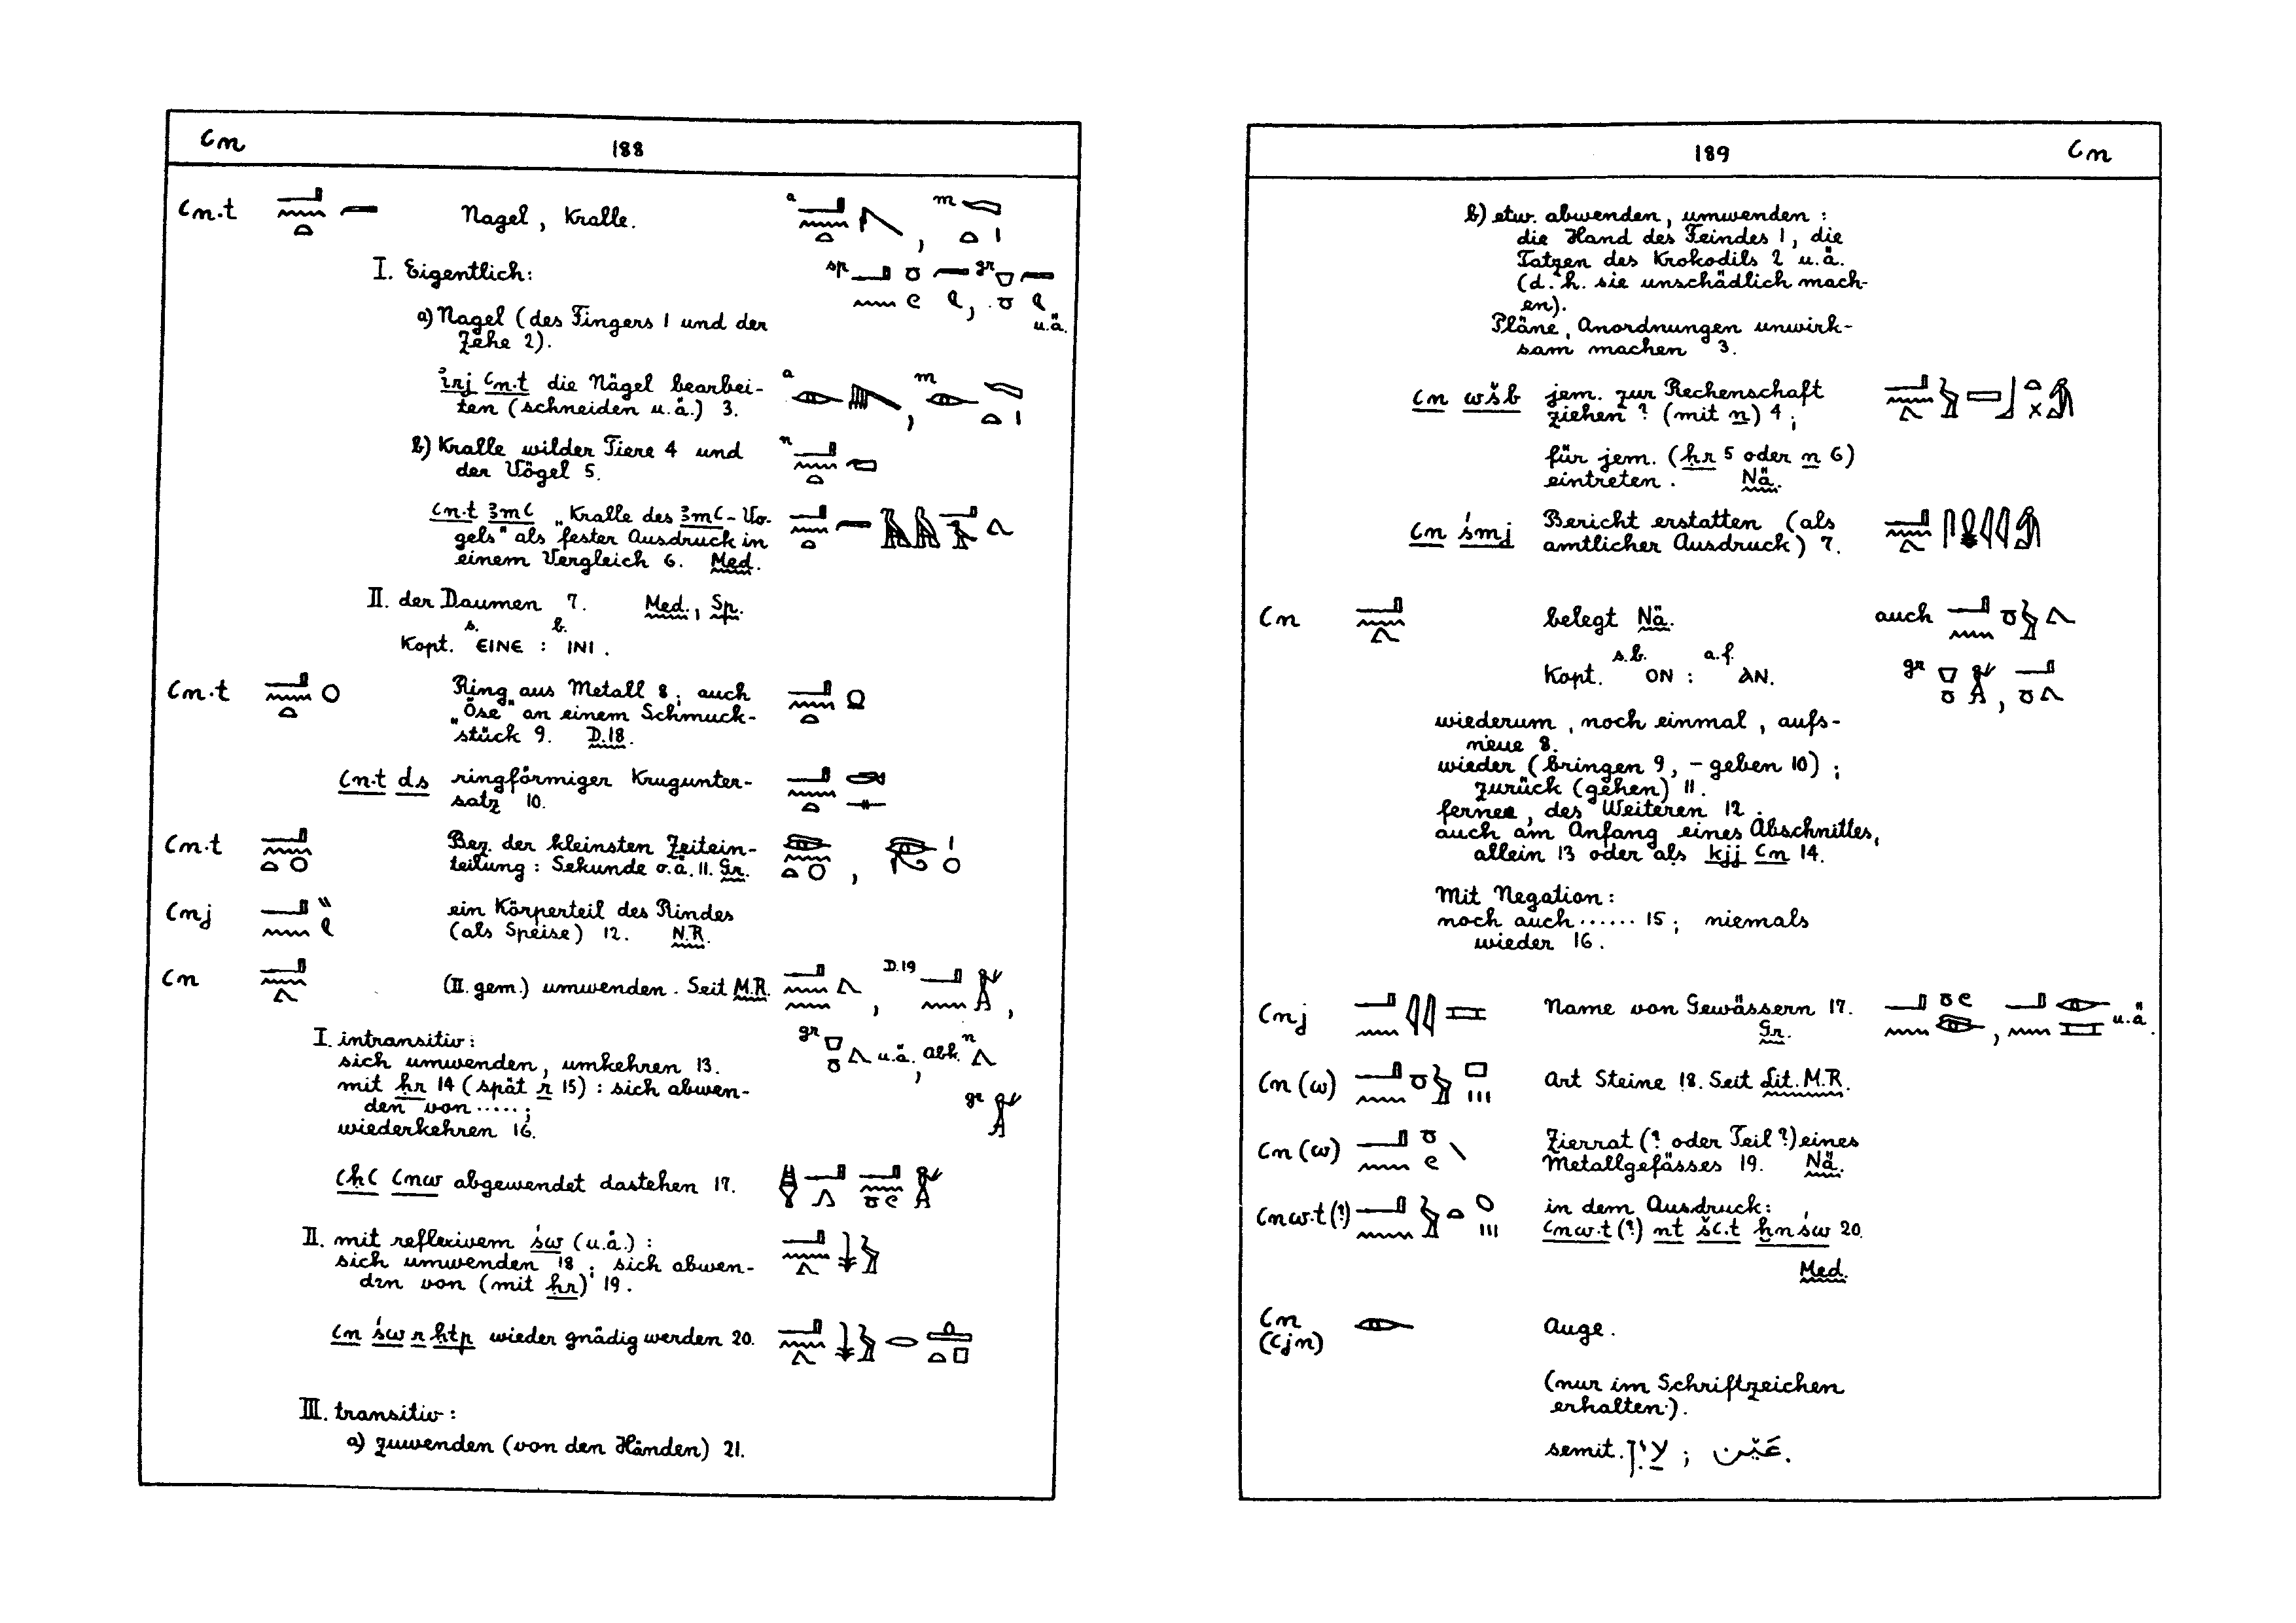 ꜥn 188
ꜥn.t Nagel, Kralle. a , m
I. Eigentlich: sp gr ,
a) Nagel (des Fingers 1 und der u.ä.
Zehe 2).
ı͗rj ꜥn.t die Nägel bearbei- a , m
ten (schneiden u.ä.) 3.
b) Kralle wilder Tiere 4 und n
der Vögel 5.
ꜥn.t ꜣmꜥ „Kralle des ꜣmꜥ-Vo-
gels" als fester Ausdruck in
einem Vergleich 6. Med.
II. der Daumen 7. Med., Sp.
s. b.
Kopt. ⲈⲒⲚⲈ : ⲒⲚⲒ.
ꜥn.t Ring aus Metall 8; auch
„Öse" an einem Schmuck-
stück 9. D.18.
ꜥn.t ds ringförmiger Krugunter-
satz 10.
ꜥn.t Bez. der kleinsten Zeitein-
teilung: Sekunde o.ä. 11. Gr. ,
ꜥnj ein Körperteil des Rindes
(als Speise) 12. N.R.
ꜥn (II. gem.) umwenden. Seit M.R. , D.19 ,
I. intransitiv: gr u.ä., abk. n
sich umwenden, umkehren 13.
mit ḥr 14 (spät r 15): sich abwen- gr
den von .....;
wiederkehren 16.
ꜥḥꜥ ꜥnw abgewendet dastehen 17.
II. mit reflexivem św (u.ä.):
sich umwenden 18; sich abwen-
den von (mit ḥr) 19.
ꜥn św r ḥtp wieder gnädig werden 20.
III. transitiv:
a) zuwenden (von den Händen) 21.
189 ꜥn
b) etw. abwenden, umwenden:
die Hand des Feindes 1, die
Tatzen des Krokodils 2 u.ä.
(d. h. sie unschädlich mach-
en).
Pläne, Anordnungen unwirk-
sam machen 3.
ꜥn wšb jem. zur Rechenschaft
ziehen? (mit n) 4;
für jem. (ḥr 5 oder n 6)
eintreten. Nä.
ꜥn śmj Bericht erstatten (als
amtlicher Ausdruck) 7.
ꜥn belegt Nä. auch
s.b. a.f.
Kopt. ⲞⲚ : ⲀⲚ. gr ,
wiederum, noch einmal, aufs-
neue 8.
wieder (bringen 9, - geben 10);
zurück (gehen) 11.
ferner, des Weiteren 12.
auch am Anfang eines Abschnittes,
allein 13 oder als kjj ꜥn 14.
Mit Negation:
noch auch ...... 15; niemals
wieder 16.
ꜥnj Name von Gewässern 17. , u.ä.
Gr.
ꜥn(w) Art Steine 18. Seit Lit. M.R.
ꜥn(w) Zierrat (? oder Teil?) eines
Metallgefässes 19. Nä.
ꜥnw.t(?) in dem Ausdruck:
ꜥnw.t(?) nt šꜥ.t ẖnśw 20.
Med.
ꜥn
(ꜥjn) Auge.
(nur im Schriftzeichen
erhalten.).
semit. עַיִן ; عَيْن.